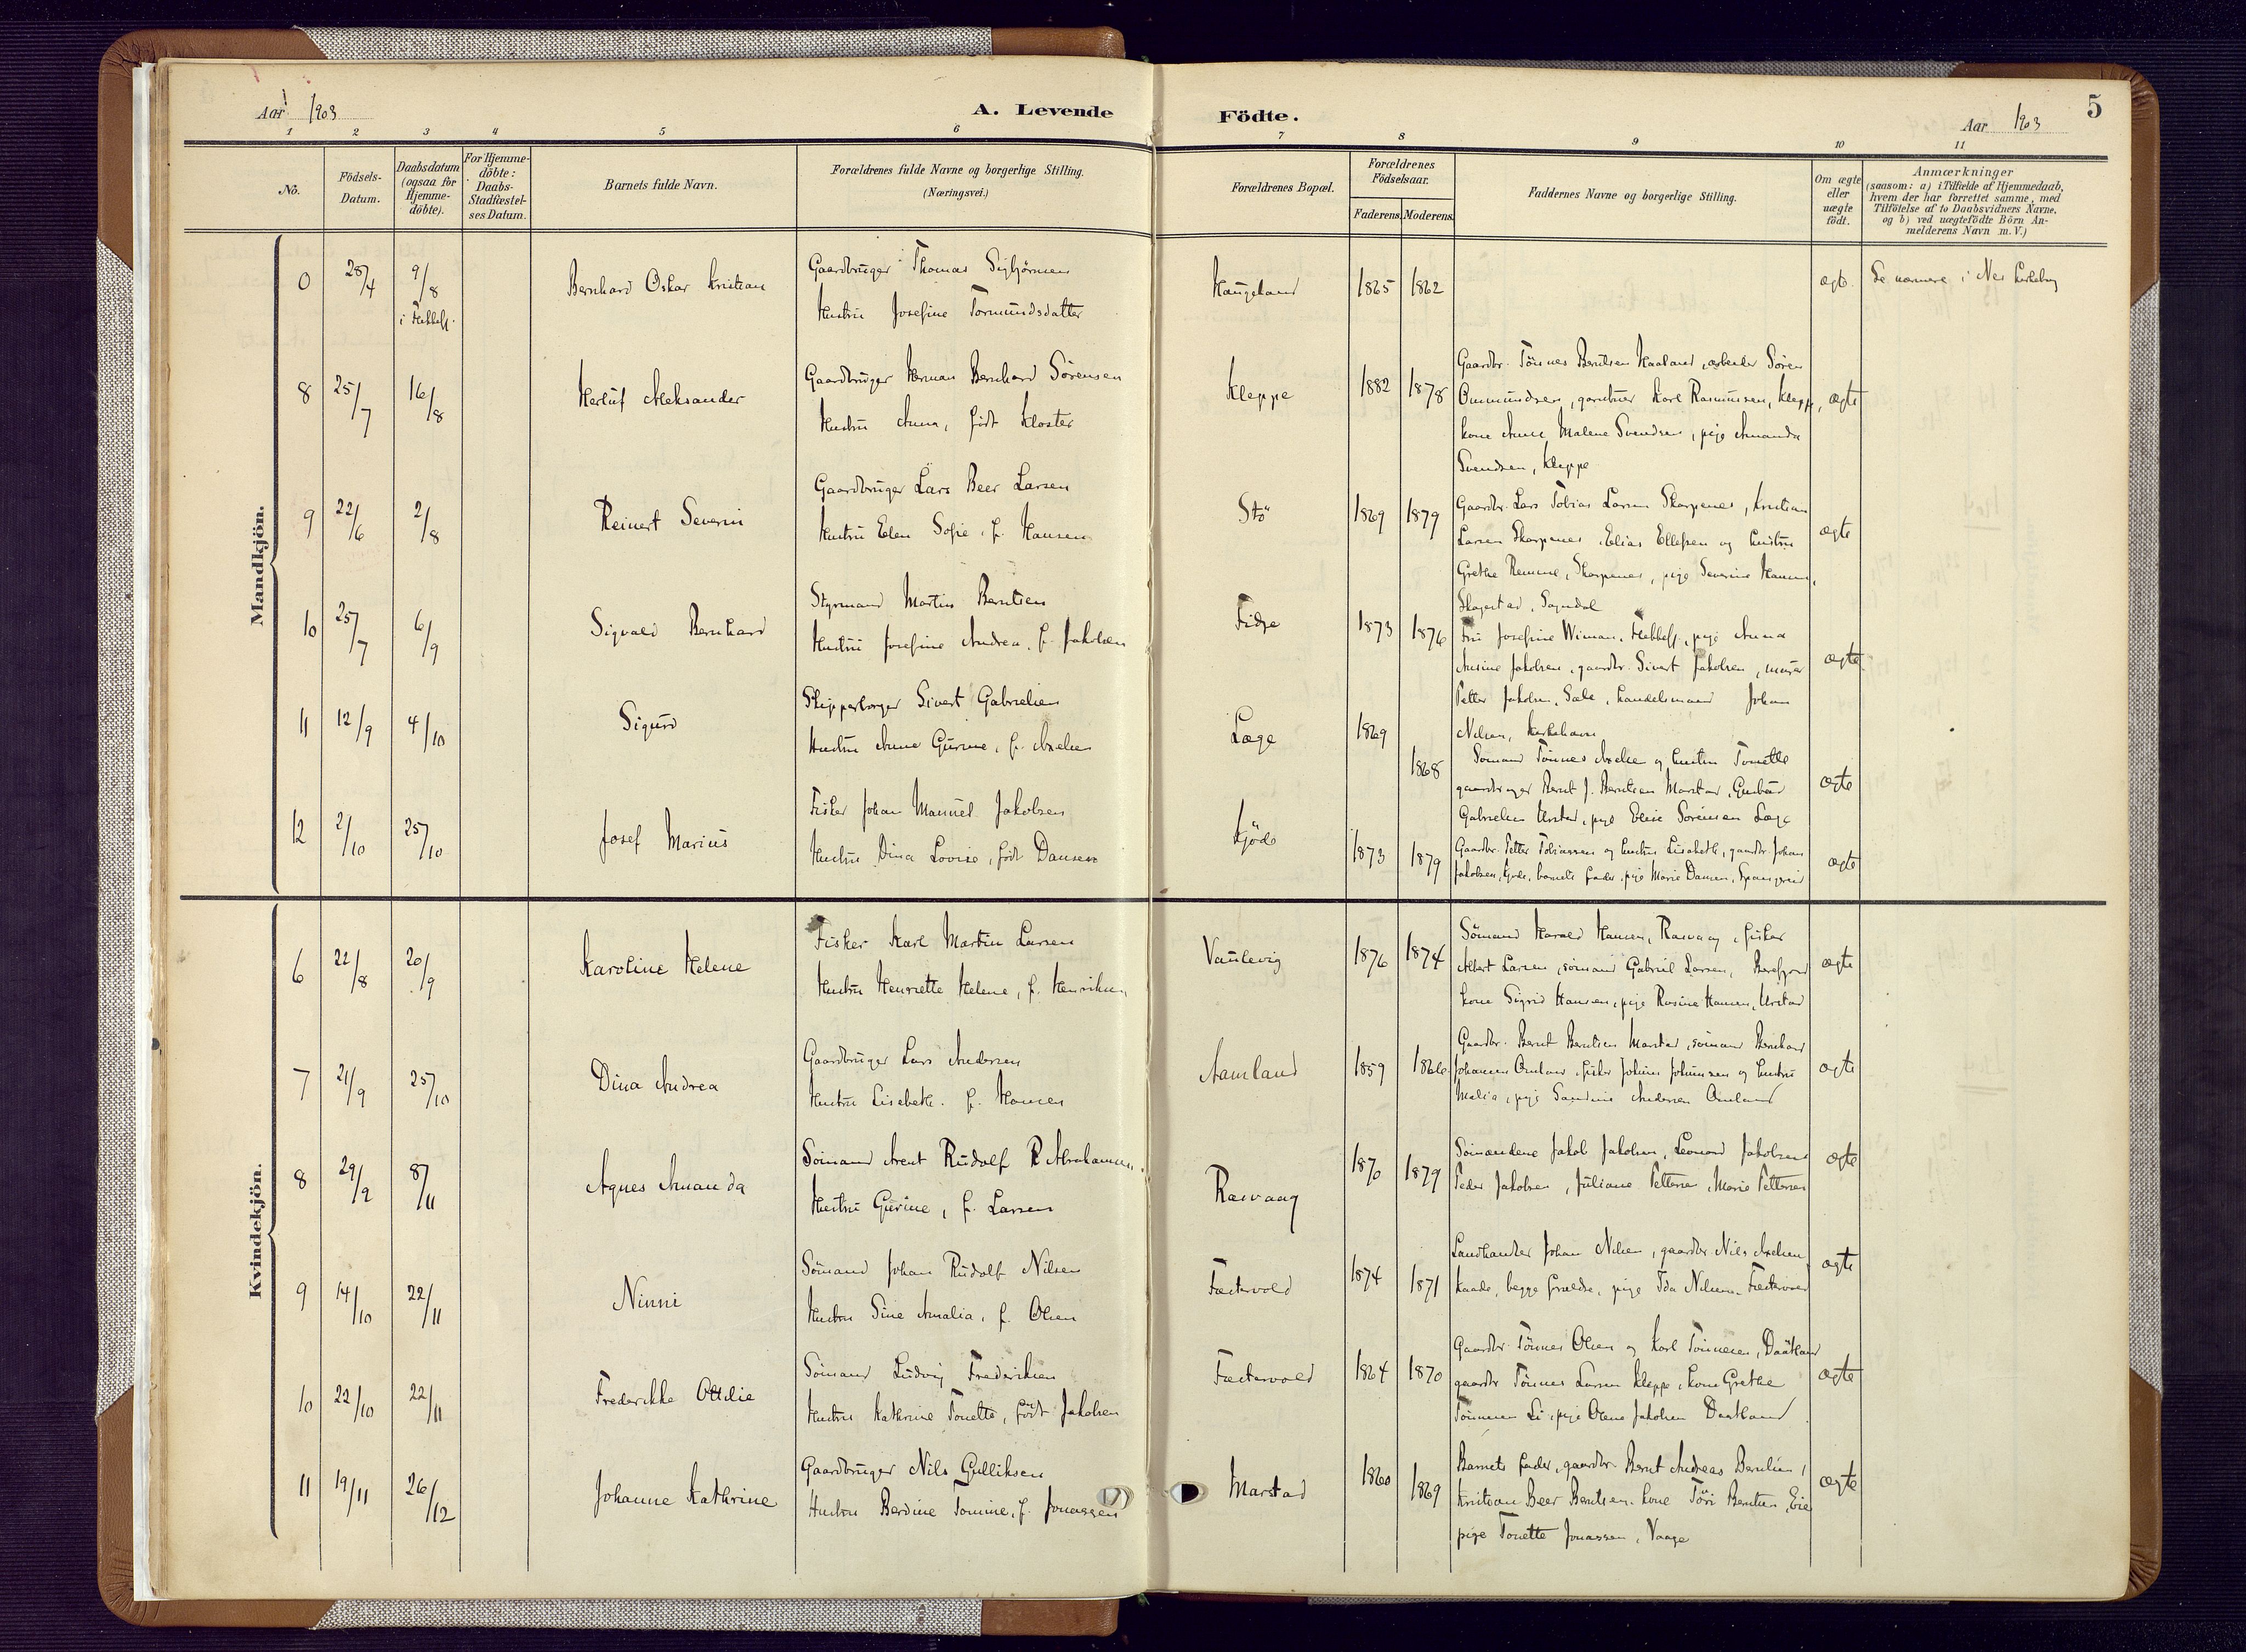 Aar 1903
A. Levende
Födte.
Aar 1903
5
1 2 3 4 5 6 7 8 9 10 11
No.
Födsels-
Datum.
Daabsdatum
(ogsaa for
Hjemme-
döbte).
For Hjemme-
döbte:
Daabs-
Stadfæstel-
ses Datum.
Barnets fulde Navn.
Forældrenes fulde Navne og borgerlige Stilling.
(Næringsvei.)
Forældrenes Bopæl.
Forældrenes
Födselsaar.
Faderens. Moderens.
Faddernes Navne og borgerlige Stilling.
Om ægte
eller
uægte
födt.
Anmærkninger
(saasom: a) i Tilfælde af Hjemmedaab,
hvem der har forrettet samme, med
Tilföielse af to Daabsvidners Navne,
og b) ved uægtefödte Börn An-
melderens Navn m. V.)
Mandkjön.
0 28/4 9/8
i Flekkefj.
Bernhard Oskar Kristian
Gaardbruger Thomas Sigbjörnsen
Hustru Josefine Tormundsdatter
Haugeland 1865 1862
ægte
Se nærmere i Nes Kirkebog
8 25/7 16/8
Herluf Aleksander
Gaardbruger Herman Bernhard Sörensen
Hustru Anna, födt Kloster
Kleppe 1882 1878
Gaardbr. Tönnes Berntsen Haaland, arbeider Sören
Ommundsen, garntner Karl Rasmussen, Kleppe,
kone Anne Malene Svendsen, pige Amanda
Svendsen, Kleppe
ægte
9 22/6 2/8
Reinert Severin
Gaardbruger Lars Beer Larsen
Hustru Elen Sofie, f. Hansen
Stö 1869 1879
Gaardbr. Lars Tobias Larsen Skarpenes, Kristian
Larsen Skarpenes, Elias Ellefsen og hustru
Grethe Remme, Skarpenes, pige Severine Hansen,
Skogestad, Sogndal
ægte
10 25/7 6/9
Sigvald Bernhard
Styrmand Martin Berntsen
Hustru Josefine Andrea, f. Jakobsen
Fidje 1873 1876
Fru Josefine Wiman, Flekkefj., pige Anna
Ansine Jakobsen, gaardbr. Sivert Jakobsen, murer
Petter Jakobsen, Sæle, handelsmand Johan
Nilsen, Kirkehavn
ægte
11 12/9 4/10
Sigurd
Skipperborger Sivert Gabrielsen
Hustru Anne Gurine, f. Axelsen
Læge 1869 1868
Sömand Tönnes Axelsen og hustru Tonette
gaardbruger Bernt J. Berntsen Marstad, Gunbor
Gabrielsen Urstad, pige Elise Sörensen Læge
ægte
12 2/10 25/10
Josef Marius
Fisker Johan Manuel Jakobsen
Hustru Dina Lovise, födt Dansen
Kjöde 1873 1879
Gaardbr. Petter Tobiassen og hustru Lisabeth, gaardbr Johan
Jakobsen, Kjöde, barnets fader, pige Marie Dansen, Spangereid
ægte
Kvindekjön.
6 22/8 20/9
Karoline Helene
Fisker Karl Martin Larsen
Hustru Henriette Helene, f. Henriksen
Vaulevig 1876 1874
Sömand Harald Hansen, Rasvaag, fisker
Albert Larsen, sömand Gabriel Larsen, Berefjord
kone Sigrid Hansen, pige Rasine Hansen, Urstad
ægte
7 21/9 25/10
Dina Andrea
Gaardbruger Lars Andersen
Hustru Lisebeth, f. Hansen
Aamland 1859 1866
Gaardbr. Bernt Berntsen Marstad, sömand Bernhard
Johansen Omland, fisker Johan Johannsen og hustru
Malia, pige Sandine Andersen Omland
ægte
8 29/9 8/11
Agnes Amanda
Sömand Arent Rudolf R Abrahamsen
Hustru Gurine, f. Larsen
Rasvaag 1870 1879
Sömændene Jakob Jakobsen, Leonard Jakobsen
Peder Jakobsen, Juliane Pettersen, Marie Pettersen
ægte
9 14/10 22/11
Ninni
Sömand Johan Rudolf Nilsen
Hustru Sine Amalia, f. Olsen
Festervold 1874 1871
Landhandler Johan Nilsen, gaardbr Nils Axelsen
Kaade, begge forældre, pige Ida Nilsen, Festervold
ægte
10 22/10 22/11
Frederikke Ottilie
Sömand Ludvig Frederiksen
Hustru Kathrine Tonette, födt Jakobsen
Festervold 1864 1870
Gaardbr. Tönnes Olsen og Karl Tönnesen, Daatland
gaardbr Tönnes Larsen Kleppe, kone Grethe
Tönnesen Li, pige Olene Jakobsen Daatland
ægte
11 19/11 26/12
Johanne Kathrine
Gaardbruger Nils Gulliksen
Hustru Berdine Tomine, f. Jonassen
Marstad 1860 1869
Barnets fader, gaardbr. Bernt Andreas Berntsen,
Kristian Beer Berntsen, kone Töri Berntsen, Eie
pige Tonette Jonassen, Vaage
ægte